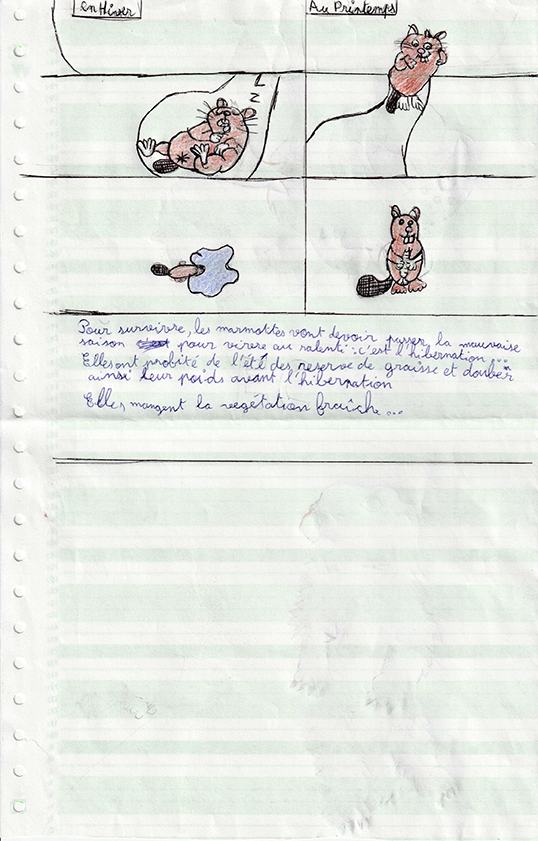 en Hiver
Au Printemps
Z
Z
Pour survivre, les marmottes vont devoir passer la mauvaise
saison pour vivre au ralenti : c'est l'hibernation ...
Elles ont probité de l'été des reserve de graisse et doubler
ainsi leur poids avant l'hibernation
Elles mangent la vegetation fraîche ...